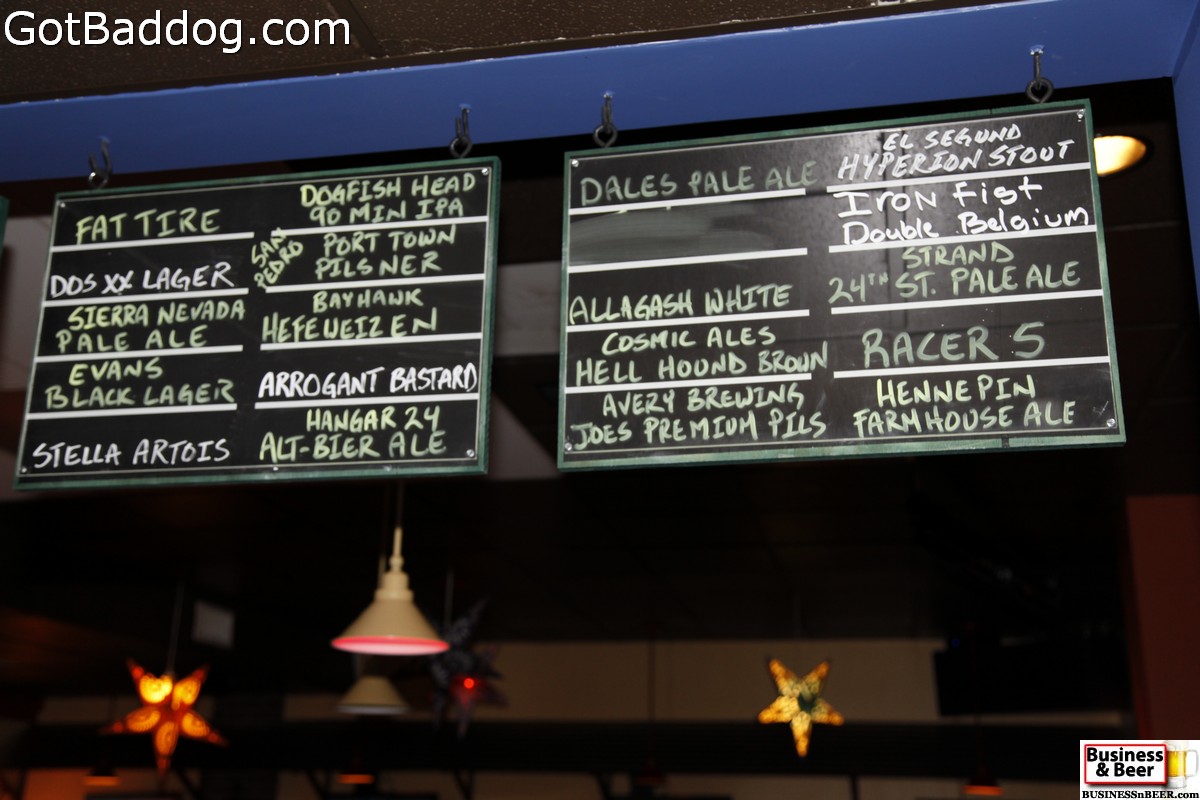 GotBaddog.com
FAT TIRE
DOS XX LAGER
SIERRA NEVADA
PALE ALE
EVANS
BLACK LAGER
STELLA ARTOIS
DOGFISH HEAD
90 MIN IPA
SAN
PEDRO
PORT TOWN
PILSNER
BAYHAWK
HEFEWEIZEN
ARROGANT BASTARD
HANGAR 24
ALT-BIER ALE
DALES PALE ALE
ALLAGASH WHITE
COSMIC ALES
HELL HOUND BROWN
AVERY BREWING
JOES PREMIUM PILS
EL SEGUND
HYPERION STOUT
IRON Fist
Double Belgium
STRAND
24TH ST. PALE ALE
RACER 5
HENNEPIN
FARMHOUSE ALE
Business
& Beer
BUSINESSnBEER.com